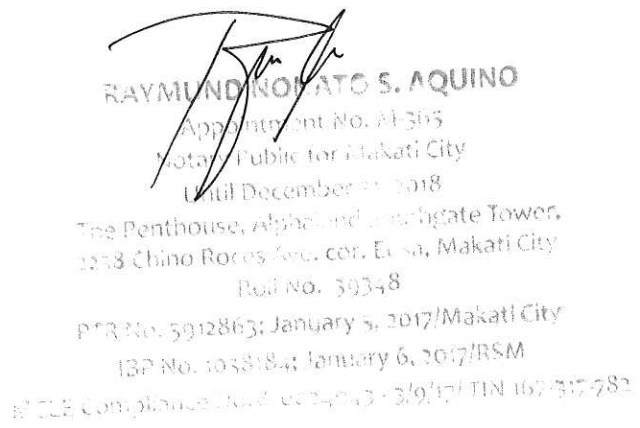 RAYMUND NONATO S. AQUINO
Appointment No. M-365
Notary Public for Makati City
Until December 2018
The Penthouse, Alphaland Southgate Tower,
2258 Chino Roces Ave. cor. Edsa, Makati City
Roll No. 39348
PTR No. 5912863; January 5, 2017/Makati City
IBP No. 1058184; January 6, 2017/RSM
MCLE Compliance - 3/9/17/ TIN 167-317-782